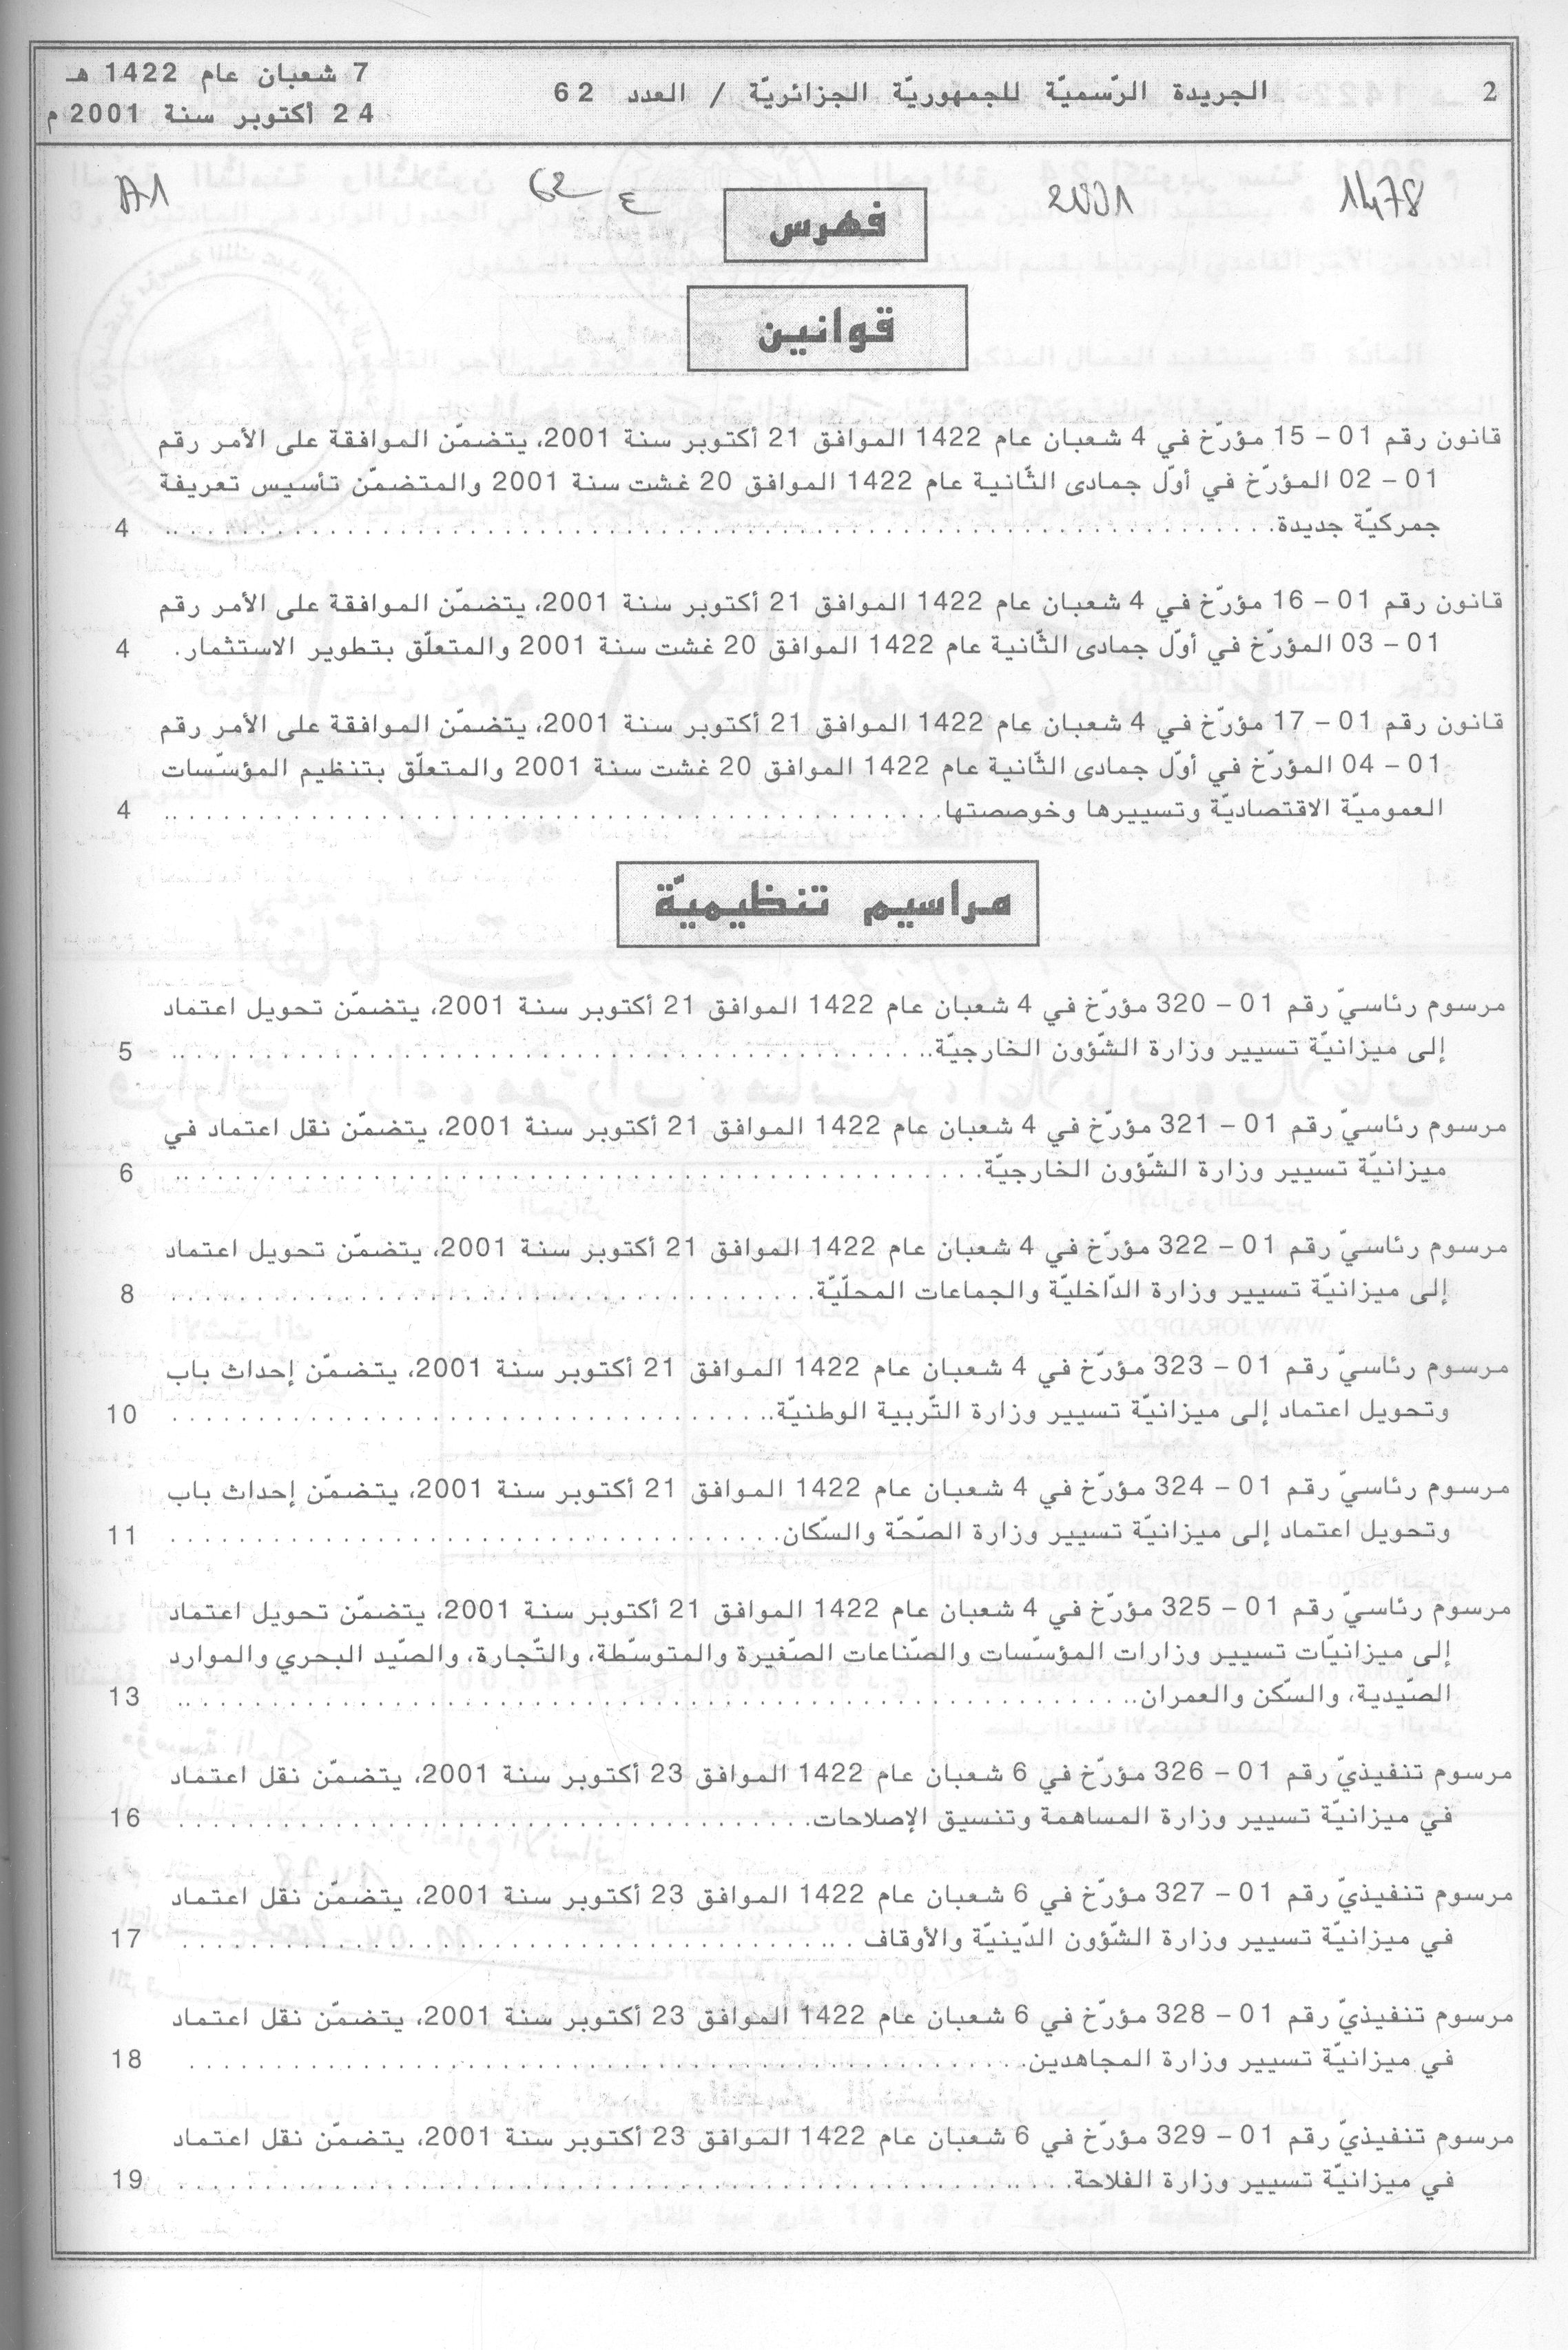 2
الجريدة الرّسميّة للجمهوريّة الجزائريّة / العدد 62
7 شعبان عام 1422 هـ
24 أكتوبر سنة 2001 م
1478
2001
62 ع
A1
فهرس
قوانين
قانون رقم 01 – 15 مؤرّخ في 4 شعبان عام 1422 الموافق 21 أكتوبر سنة 2001، يتضمّن الموافقة على الأمر رقم
01 – 02 المؤرّخ في أوّل جمادى الثّانية عام 1422 الموافق 20 غشت سنة 2001 والمتضمّن تأسيس تعريفة
جمركيّة جديدة........................................................... 4
قانون رقم 01 – 16 مؤرّخ في 4 شعبان عام 1422 الموافق 21 أكتوبر سنة 2001، يتضمّن الموافقة على الأمر رقم
01 – 03 المؤرّخ في أوّل جمادى الثّانية عام 1422 الموافق 20 غشت سنة 2001 والمتعلّق بتطوير الاستثمار. 4
قانون رقم 01 – 17 مؤرّخ في 4 شعبان عام 1422 الموافق 21 أكتوبر سنة 2001، يتضمّن الموافقة على الأمر رقم
01 – 04 المؤرّخ في أوّل جمادى الثّانية عام 1422 الموافق 20 غشت سنة 2001 والمتعلّق بتنظيم المؤسّسات
العموميّة الاقتصاديّة وتسييرها وخوصصتها........................................ 4
مراسيم تنظيميّة
مرسوم رئاسيّ رقم 01 – 320 مؤرّخ في 4 شعبان عام 1422 الموافق 21 أكتوبر سنة 2001، يتضمّن تحويل اعتماد
إلى ميزانيّة تسيير وزارة الشّؤون الخارجيّة........................................ 5
مرسوم رئاسيّ رقم 01 – 321 مؤرّخ في 4 شعبان عام 1422 الموافق 21 أكتوبر سنة 2001، يتضمّن نقل اعتماد في
ميزانيّة تسيير وزارة الشّؤون الخارجيّة........................................ 6
مرسوم رئاسيّ رقم 01 – 322 مؤرّخ في 4 شعبان عام 1422 الموافق 21 أكتوبر سنة 2001، يتضمّن تحويل اعتماد
إلى ميزانيّة تسيير وزارة الدّاخليّة والجماعات المحلّيّة................................ 8
مرسوم رئاسيّ رقم 01 – 323 مؤرّخ في 4 شعبان عام 1422 الموافق 21 أكتوبر سنة 2001، يتضمّن إحداث باب
وتحويل اعتماد إلى ميزانيّة تسيير وزارة التّربية الوطنيّة................................ 10
مرسوم رئاسيّ رقم 01 – 324 مؤرّخ في 4 شعبان عام 1422 الموافق 21 أكتوبر سنة 2001، يتضمّن إحداث باب
وتحويل اعتماد إلى ميزانيّة تسيير وزارة الصّحّة والسّكان................................ 11
مرسوم رئاسيّ رقم 01 – 325 مؤرّخ في 4 شعبان عام 1422 الموافق 21 أكتوبر سنة 2001، يتضمّن تحويل اعتماد
إلى ميزانيّات تسيير وزارات المؤسّسات والصّناعات الصّغيرة والمتوسّطة، والتّجارة، والصّيد البحري والموارد
الصّيدية، والسّكن والعمران.................................................. 13
مرسوم تنفيذيّ رقم 01 – 326 مؤرّخ في 6 شعبان عام 1422 الموافق 23 أكتوبر سنة 2001، يتضمّن نقل اعتماد
في ميزانيّة تسيير وزارة المساهمة وتنسيق الإصلاحات................................ 16
مرسوم تنفيذيّ رقم 01 – 327 مؤرّخ في 6 شعبان عام 1422 الموافق 23 أكتوبر سنة 2001، يتضمّن نقل اعتماد
في ميزانيّة تسيير وزارة الشّؤون الدّينيّة والأوقاف ................................ 17
مرسوم تنفيذيّ رقم 01 – 328 مؤرّخ في 6 شعبان عام 1422 الموافق 23 أكتوبر سنة 2001، يتضمّن نقل اعتماد
في ميزانيّة تسيير وزارة المجاهدين........................................ 18
مرسوم تنفيذيّ رقم 01 – 329 مؤرّخ في 6 شعبان عام 1422 الموافق 23 أكتوبر سنة 2001، يتضمّن نقل اعتماد
في ميزانيّة تسيير وزارة الفلاحة........................................ 19